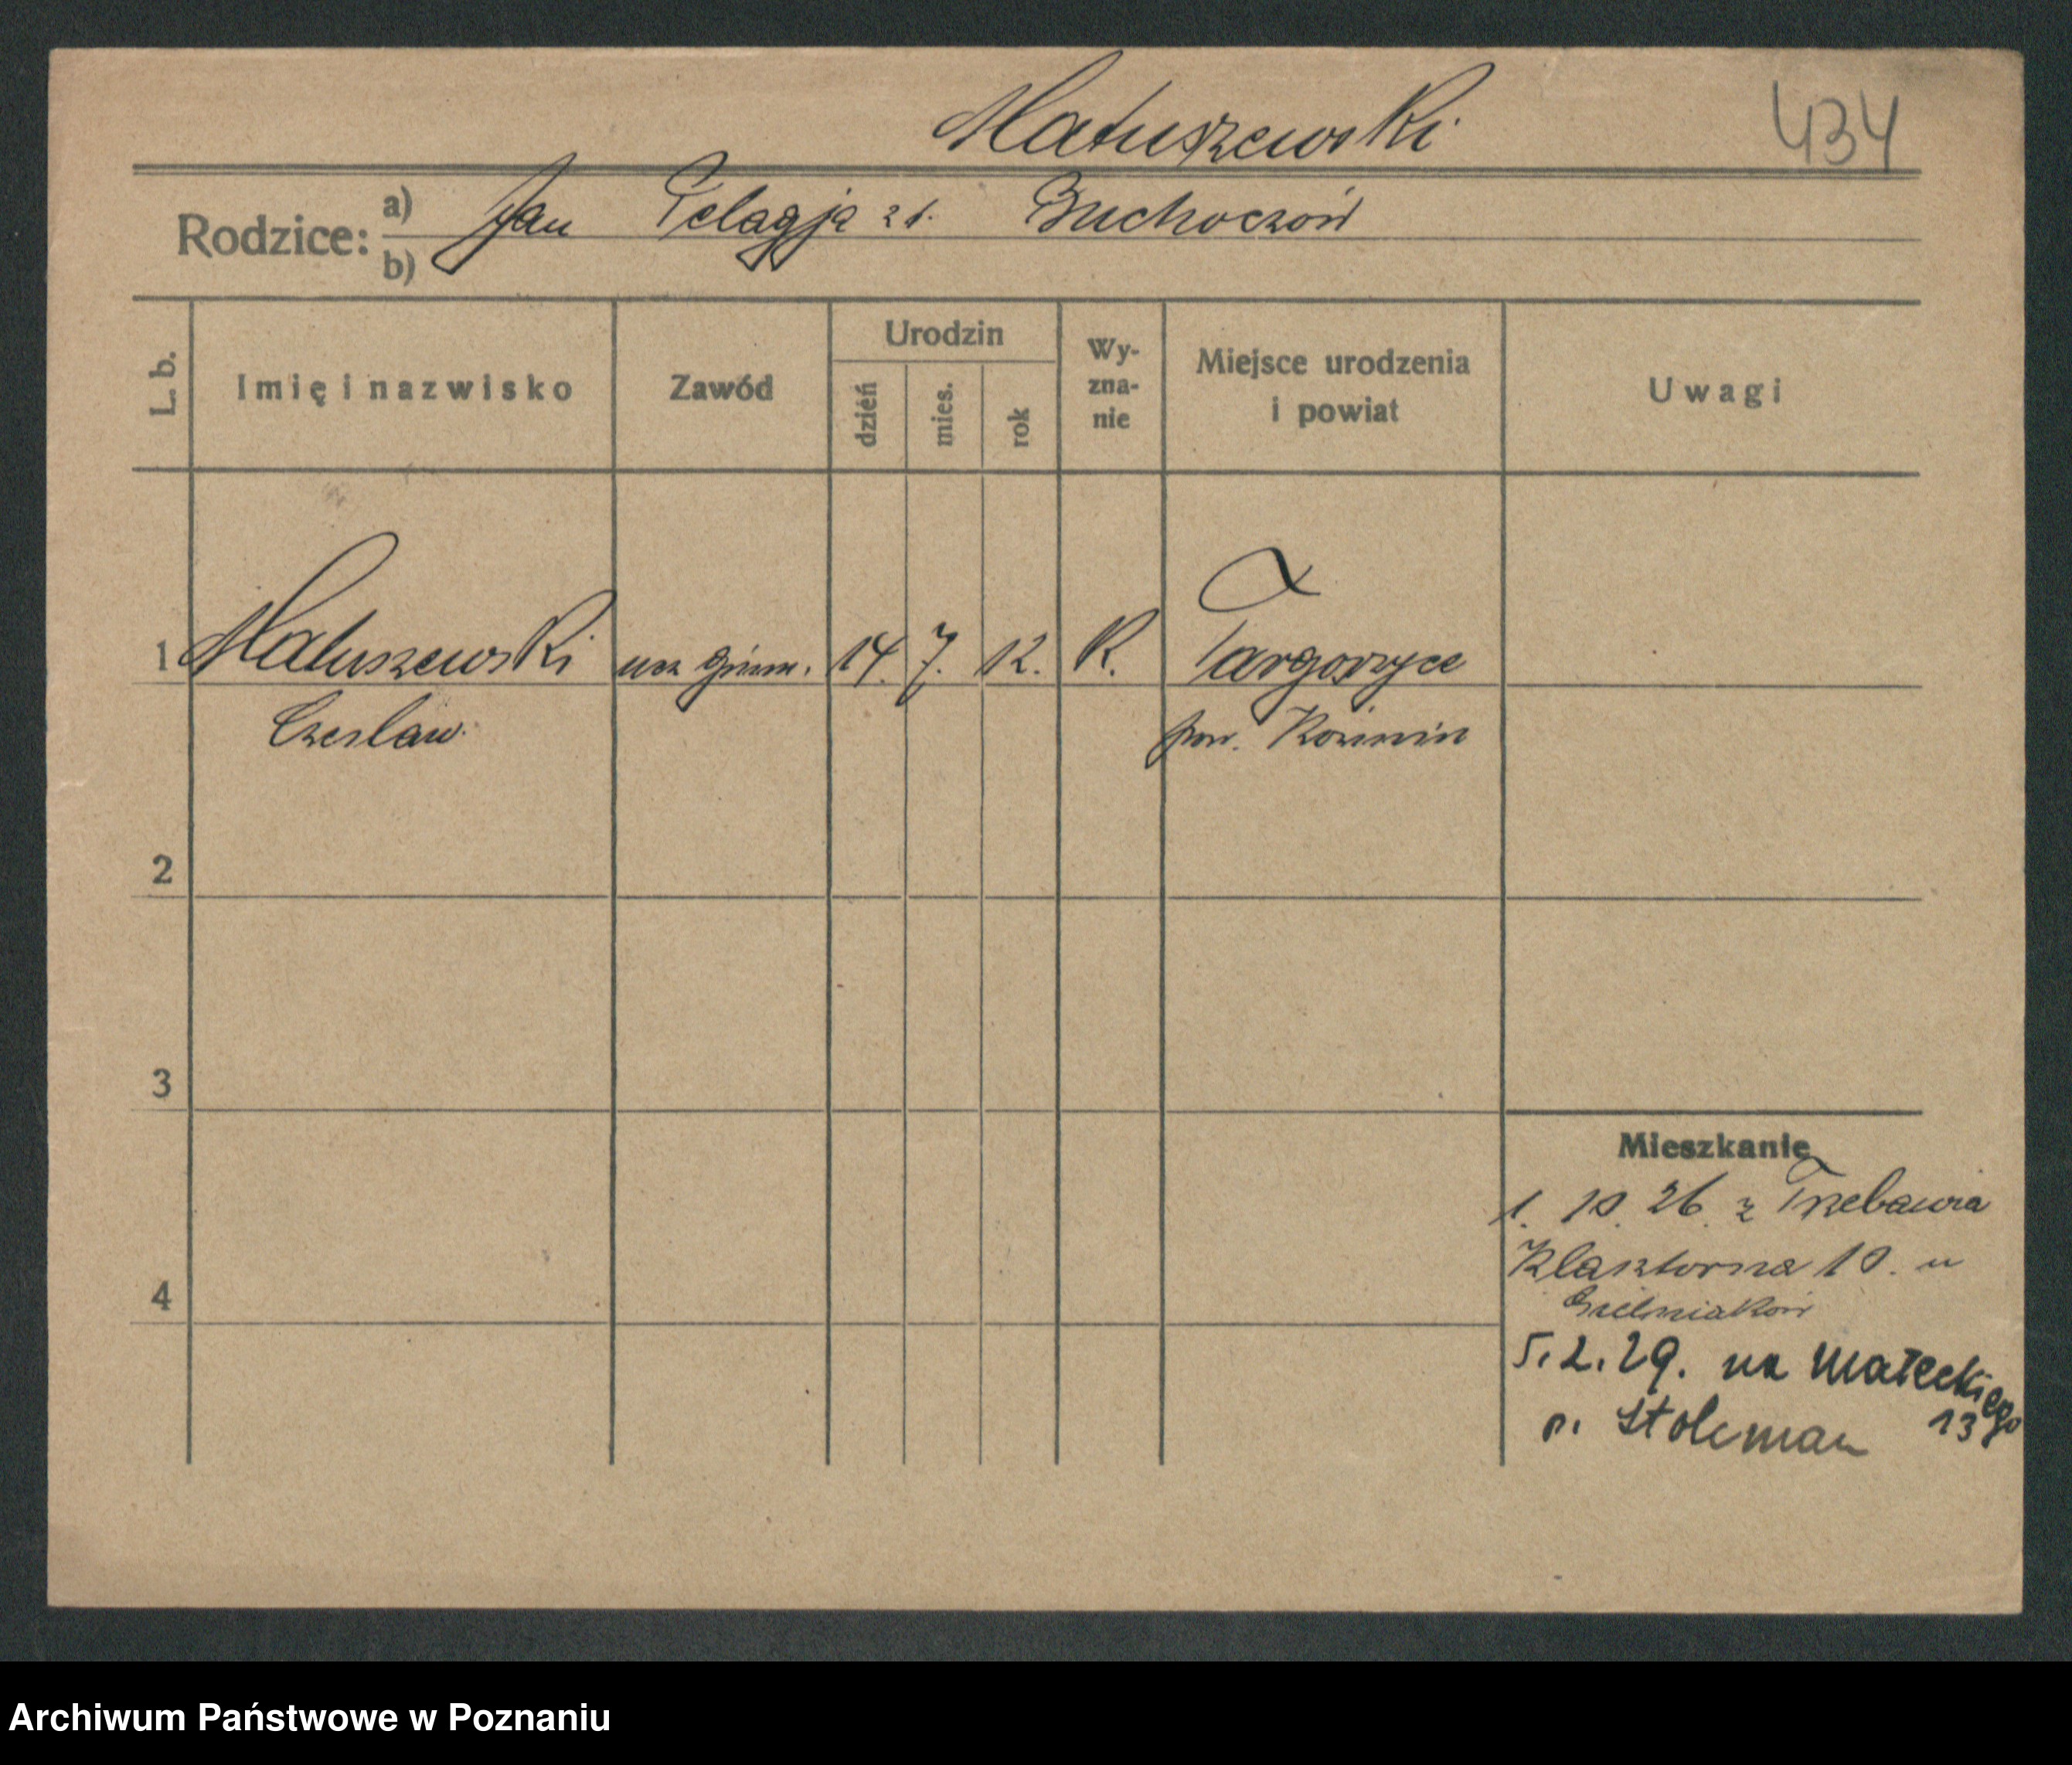 Matuszewski
434
Rodzice: a) Jan Pelagja z d. Buchoczów
b)
L. b.
Imię i nazwisko
Zawód
Urodzin
dzień
mies.
rok
Wy-
zna-
nie
Miejsce urodzenia
i powiat
Uwagi
1 Matuszewski ucz gimn. 14. 7. 12. K. Targoszyce
Czesław pow. Koźmin
2
3
4
Mieszkanie
1. 10. 26. z Trzebawia
Klasztorna 10. u
5.2.29. na Małeckiego
13
p. Stoleman
Archiwum Państwowe w Poznaniu